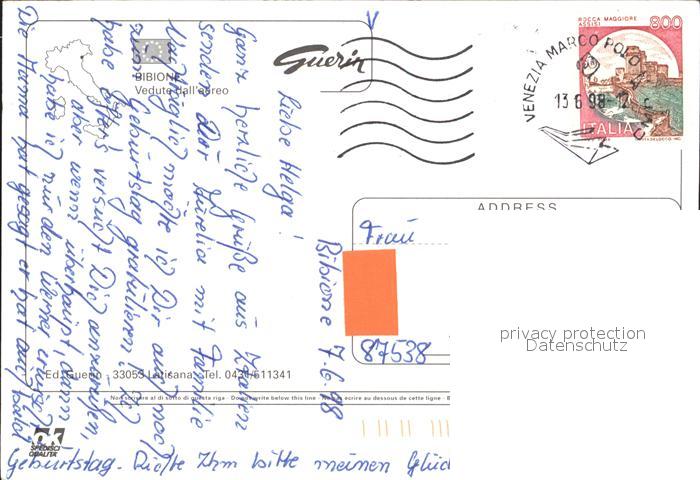 BIBIONE
Vedute dall'aereo
Guerin
ROCCA MAGGIORE
ASSISI
800
VENEZIA MARCO POLO
13 6 98-12
ITALIA
ADDRESS
Frau
87538
privacy protection
Datenschutz
Bibione 7.6.98
Liebe Helga!
Ganz herzliche Grüße aus Italien
sendet Dir Aurelia mit Familie
Nachträglich möchte ich Dir auch noch
zum Geburtstag gratulieren. Ich
habe öfters versucht Dich anzurufen,
aber wenn überhaupt, dann
habe ich nur den Werner erwischt
Die Mama hat gesagt er hat auch bald
Geburtstag. Richte Ihm bitte meinen Glüc
Ed. Guerin - 33053 Latisana - Tel. 0431/511341
Non scrivere al di sotto di questa riga - Do not write below this line - Ne pas écrire au dessous de cette ligne - B
SPEDISCI
QUALITA'